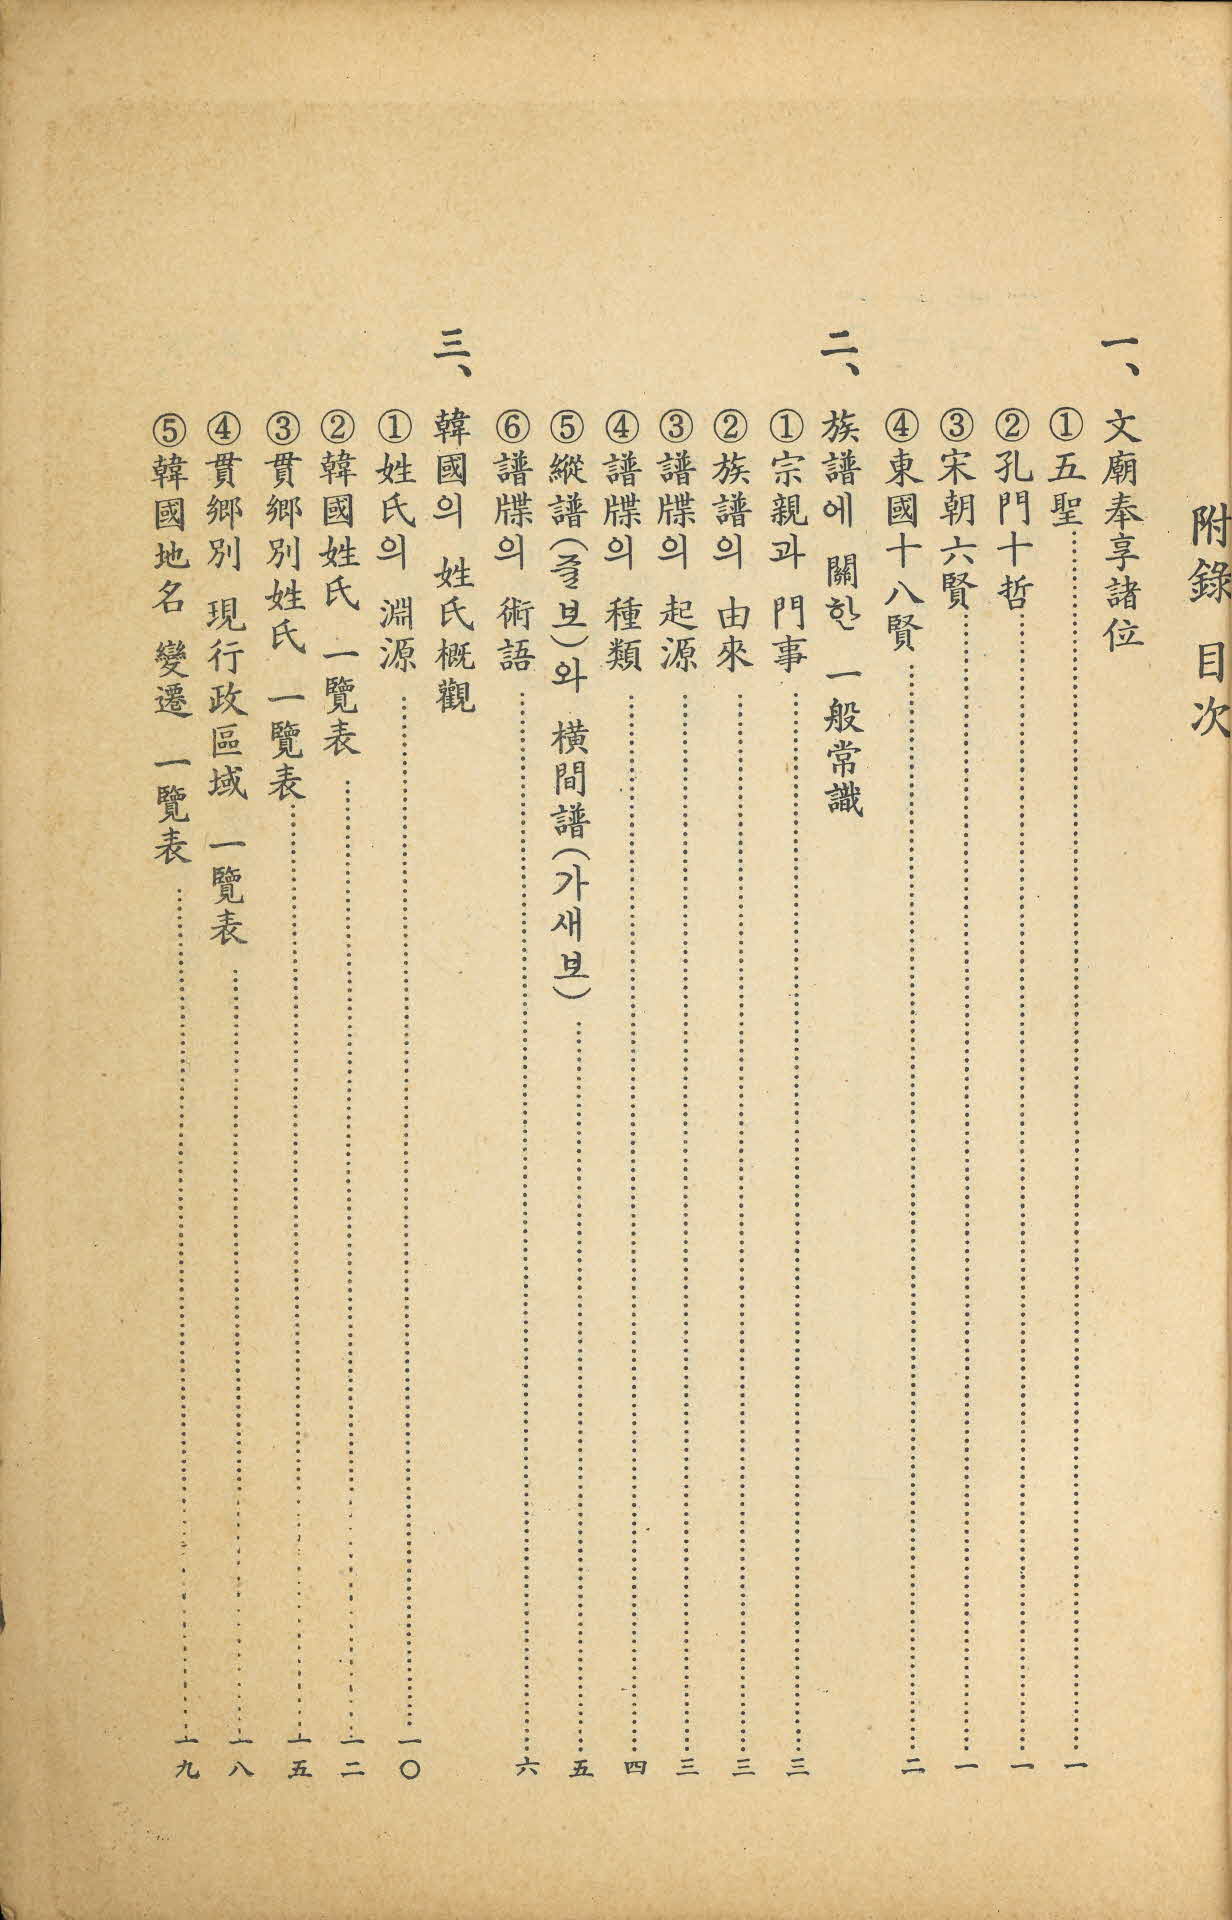 附錄 目次
一、文廟奉享諸位
①五聖……一
②孔門十哲……一
③宋朝六賢……一
④東國十八賢……二
二、族譜에 關한 一般常識
①宗親과 門事……三
②族譜의 由來……三
③譜牒의 起源……三
④譜牒의 種類……四
⑤縱譜(줄보)와 橫間譜(가새보)……五
⑥譜牒의 術語……六
三、韓國의 姓氏概觀
①姓氏의 淵源……一〇
②韓國姓氏 一覽表……一二
③貫鄉別姓氏 一覽表……一五
④貫鄉別 現行政區域 一覽表……一八
⑤韓國地名 變遷 一覽表……一九